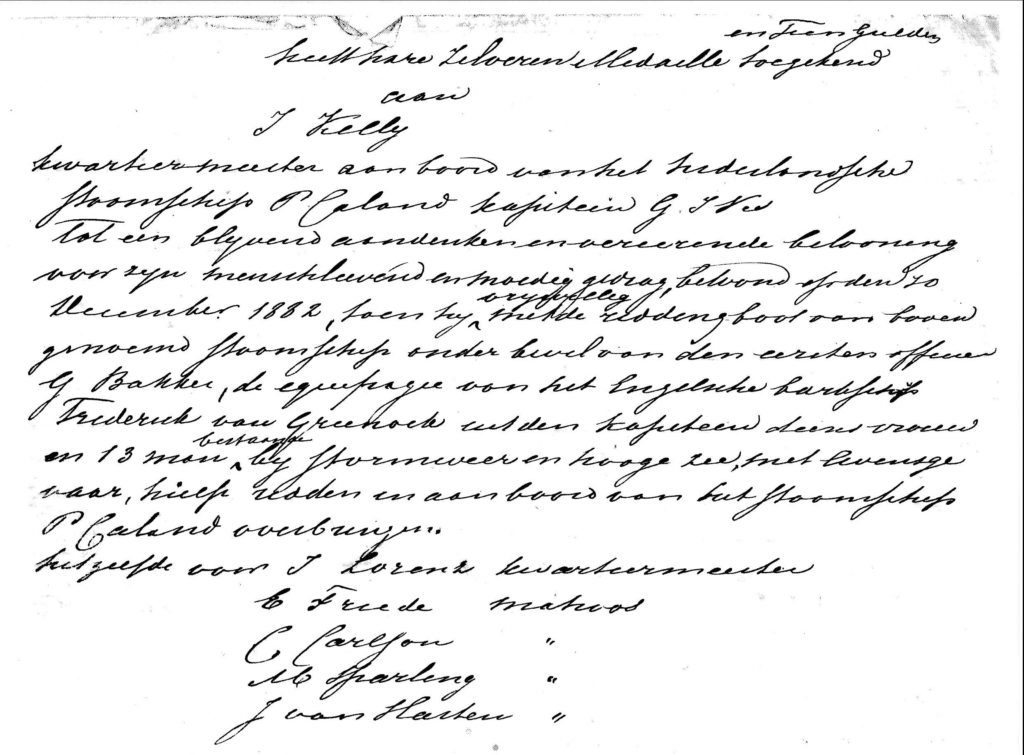 en Tien Gulden
heeft hare Zilveren Medaille toegekend
aan
J Kelly
kwartiermeester aan boord van het Nederlandsche
Stoomschip P Caland kapitein G. J Vis
tot een blyvend aandenken en vereerende belooning
voor zyn menschlievend en moedig gedrag, betoond op den 20
vrywillig
December 1882, toen hy met de reddingboot van boven
genoemd Stoomschip onder bevel van den eersten officier
G Bakker, de equipagie van het Engelsche barkschip
Frederick van Greenock uit den kapitein diens vrouw
bestaande
en 13 man by stormweer en hooge zee, met levensge
vaar, hielp redden en aan boord van het Stoomschip
P Caland overbrengen.
hetzelfde voor J Lorenz kwartiermeester
E Friede matroos
C Carlson "
M Sparling "
J van Hasten "